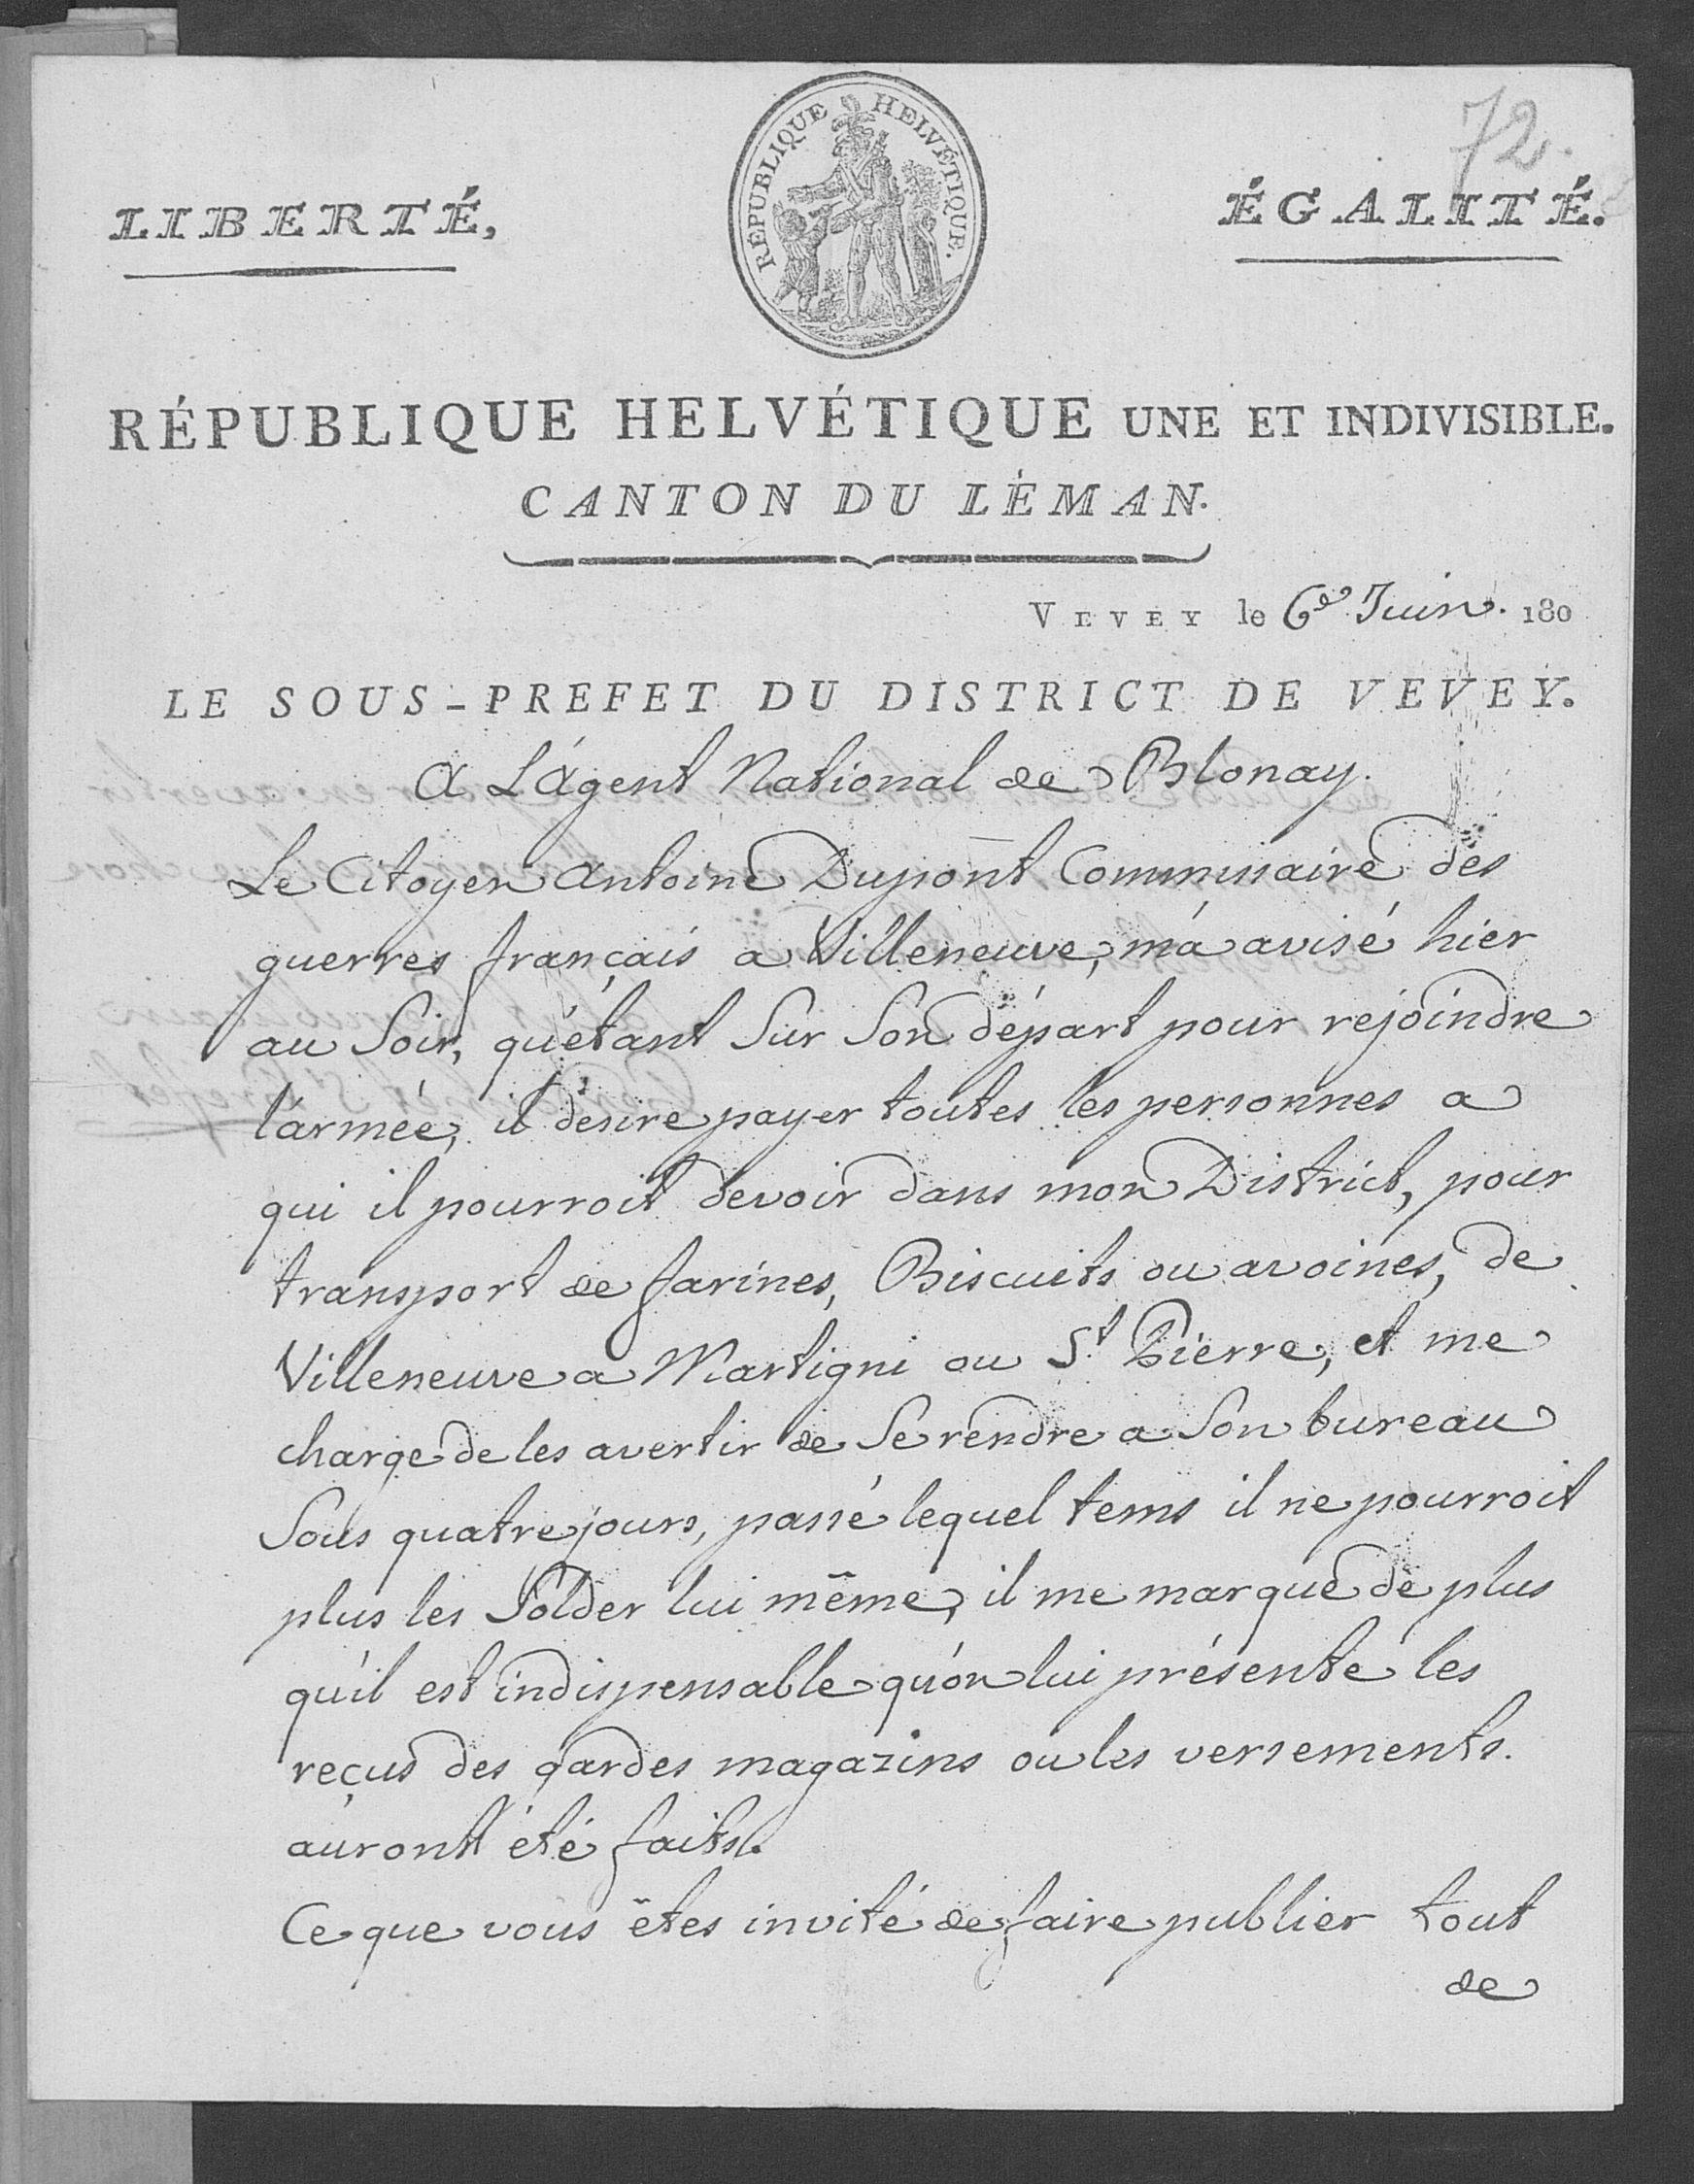 72.
RÉPUBLIQUE HELVÉTIQUE.
LIBERTÉ,
ÉGALITÉ.
RÉPUBLIQUE HELVÉTIQUE UNE ET INDIVISIBLE.
CANTON DU LÉMAN.
VEVEY le 6e Juin. 180
LE SOUS-PREFET DU DISTRICT DE VEVEY.
A L'Agent National de Blonay.
Le Citoyen Antoine Dupont Commissaire des
guerres français a Villeneuve, m'a avisé hier
au Soir, qu'étant Sur Son départ pour rejoindre
l'armée, il désire payer toutes les personnes a
qui il pourroit devoir dans mon District, pour
transport de farines, Biscuits ou avoines, de
Villeneuve a Martigni ou St Pierre, et me
charge de les avertir de Se rendre a Son bureau
Sous quatre jours, passé lequel tems il ne pourroit
plus les Solder lui même, il me marque de plus
qu'il est indispensable qu'on lui présente les
reçus des gardes magazins ou les versements.
auront été faits.
Ce que vous êtes invité de faire publier tout
de